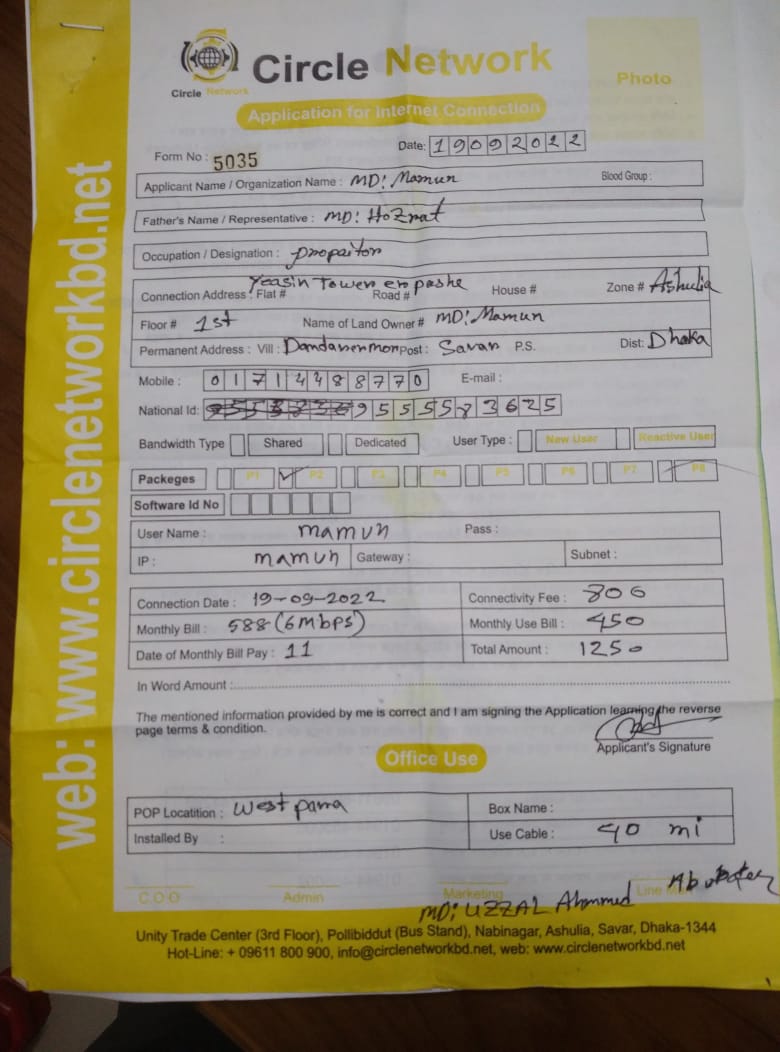 Circle Network
Circle Network
Photo
Application for Internet Connection
Form No : 5035
Date: 19092022
Applicant Name / Organization Name : MD: Mamun
Blood Group :
Father's Name / Representative : MD: HoZrat
Occupation / Designation : propaitor
Connection Address : Flat # Yeasin Tower er pashe Road # House # Zone # Ashulia
Floor # 1st Name of Land Owner # MD: Mamun
Permanent Address : Vill : Post : Savar P.S. Dist: Dhaka
Mobile : 01714488770 E-mail :
National Id: 9555583625
Bandwidth Type Shared Dedicated User Type : New User Reactive User
Packeges P1 P2 P3 P4 P5 P6 P7 P8
Software Id No
User Name : mamun Pass :
IP : mamun Gateway : Subnet :
Connection Date : 19-09-2022 Connectivity Fee : 800
Monthly Bill : 588 (6 mbps) Monthly Use Bill : 450
Date of Monthly Bill Pay : 11 Total Amount : 1250
In Word Amount :
The mentioned information provided by me is correct and I am signing the Application learning the reverse
page terms & condition.
Applicant's Signature
Office Use
POP Locatition : west para Box Name :
Installed By : Use Cable : 40 mi
C.O.O Admin Marketing Line
MD: UZZAL Ahmmed
Unity Trade Center (3rd Floor), Pollibiddut (Bus Stand), Nabinagar, Ashulia, Savar, Dhaka-1344
Hot-Line: + 09611 800 900, info@circlenetworkbd.net, web: www.circlenetworkbd.net
web: www.circlenetworkbd.net